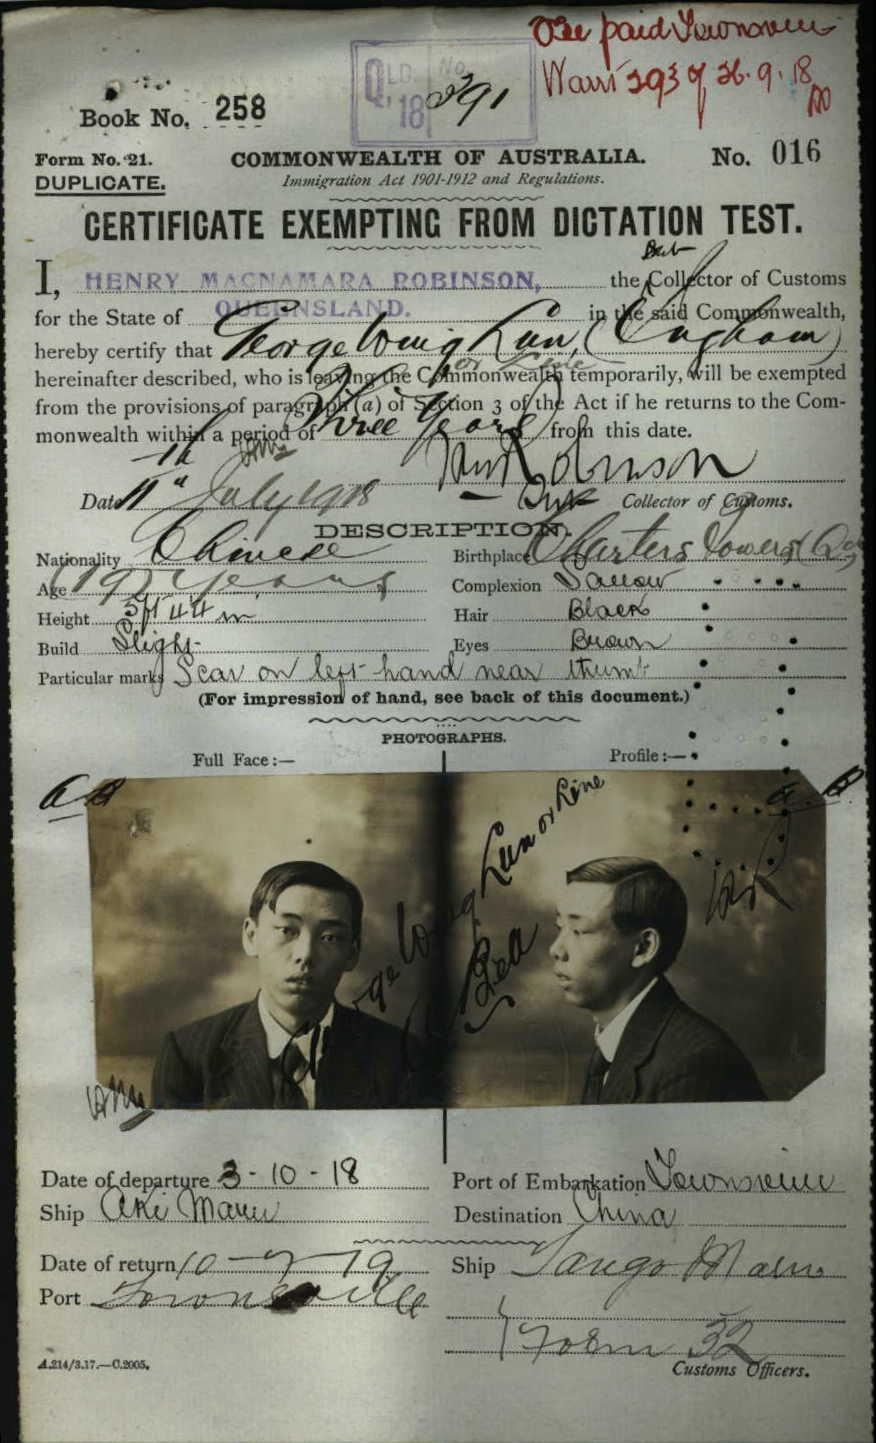 Fee paid Townsville
Warr 393 of 26.9.18
QLD. No.
'18 391
Book No. 258
Form No. 21.
DUPLICATE.
COMMONWEALTH OF AUSTRALIA.
No. 016
Immigration Act 1901-1912 and Regulations.
CERTIFICATE EXEMPTING FROM DICTATION TEST.
Sub
I, HENRY MACNAMARA ROBINSON, the Collector of Customs
for the State of QUEENSLAND. in the said Commonwealth,
hereby certify that George Wong Lun, (Ingham)
or Line
hereinafter described, who is leaving the Commonwealth temporarily, will be exempted
from the provisions of paragraph (a) of Section 3 of the Act if he returns to the Com-
monwealth within a period of Three Years from this date.
HMRobinson
Date 11th July 1918 Sub Collector of Customs.
DESCRIPTION.
Nationality Chinese Birthplace Charters Towers
Age 19 Years Complexion Sallow
Height 5ft 4 in Hair Black
Build Slight Eyes Brown
Particular marks Scar on left hand near thumb
(For impression of hand, see back of this document.)
PHOTOGRAPHS.
Full Face:— Profile:—
George Wong Lun or Line
Date of departure 3-10-18 Port of Embarkation Townsville
Ship Aki Maru Destination China
Date of return 10-7-19 Ship Tango Maru
Port Townsville
Form 32
A.214/3.17.—C.2005. Customs Officers.